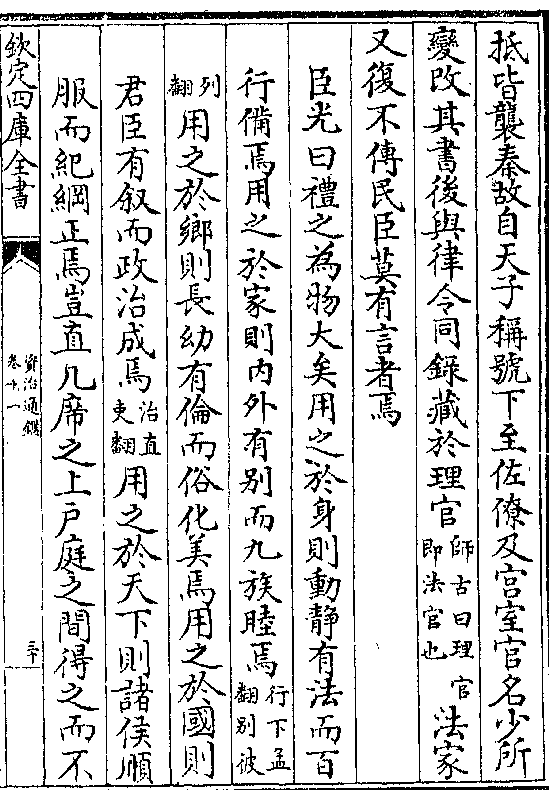 抵皆襲秦故自天子稱號下至佐僚及宫室官名少所
變改其書後與律令同錄藏於理官師古曰理官即法官也法家
又復不傳民臣莫有言者焉
臣光曰禮之為物大矣用之於身則動靜有法而百
行備焉用之於家則内外有别而九族睦焉行下孟翻别彼
列翻用之於鄉則長幼有倫而俗化美焉用之於國則
君臣有叙而政治成焉治直吏翻用之於天下則諸侯順
服而紀綱正焉豈直几席之上戶庭之間得之而不
欽定四庫全書
資治通鑑
卷十一
三十